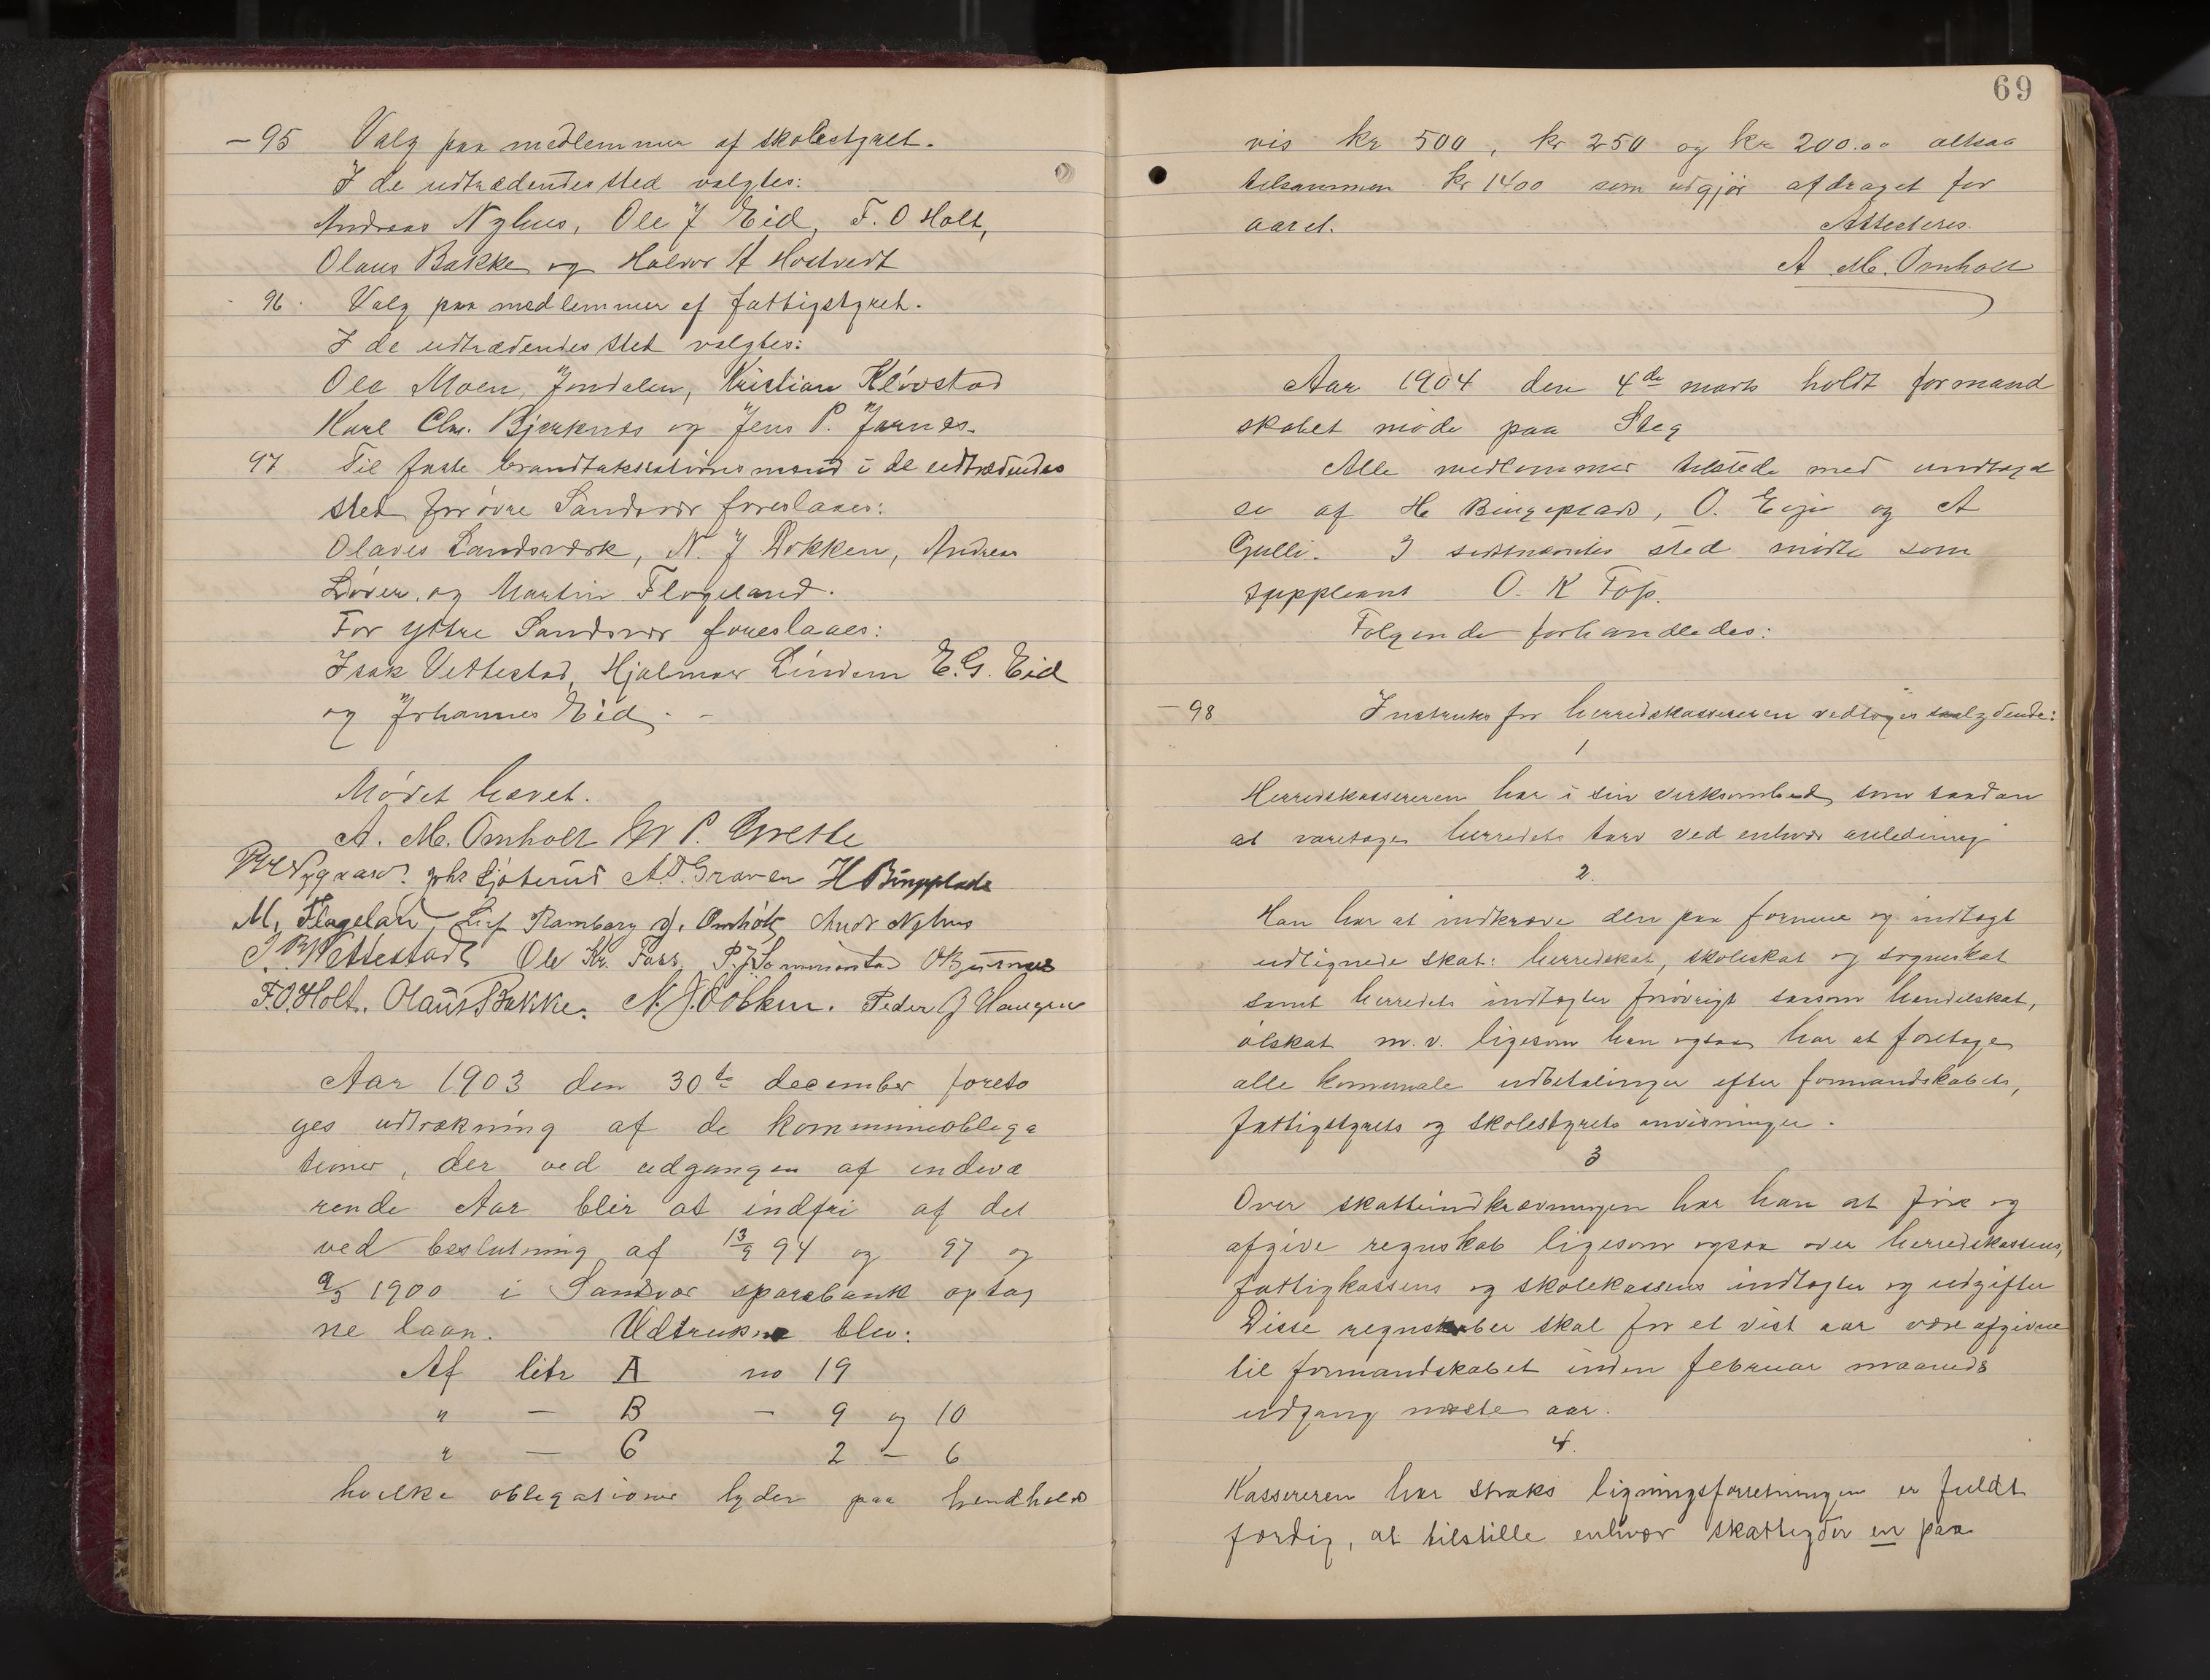 – 95 Valg paa medlemmer af skolestyret.
I de udtrædendes sted valgtes:
Andreas Nyhus, Ole J Eid, F. O Holt,
Olaus Bakke og Halvor H Hostvedt
96. Valg paa medlemmer af fattigstyret.
I de udtrædendes sted valgtes:
Ole Moen, Jondalen, Kristian Kløvstad
Karl Chr. Bjerknes og Jens P. Jarnes.
97 Til faste brandtakstationsmænd i de udtrædendes
sted for øvre Sandsvær foreslaaes:
Olaves Landsværk, N. J Dokken, Andreas
Løver, og Martin Flogeland.
For yttre Sandsvær foreslaaes:
Isak Vettestad, Hjalmar Lindem E. G. Eid
og Johannes Eid. –
Mødet hævet.
A. M. Omholt P. Grette
Nygaard. Joh. A. P. Graven H Bingeplads
M. Flageland, Leif Ramberg J. Omholt Andr Nyhus
Vettestad Ole Kr. Foss.
F. O. Holt. Olaus Bakke. N. J. Dokken. Peder J Haugen
Aar 1903 den 30te december foreto
ges udtrækning af de kommuneobliga
tioner, der ved udgangen af indevæ
rende Aar blir at indfri af det
ved beslutning af 13/9 94 og 97 og
9/3 1900 i Sandsvær sparebank optag
ne laan. Udtrukne blev:
Af litr A no 19
" – B – 9 og 10
" – C 2 – 6
hvilke obligationer lyder paa henholds
69
vis kr 500, kr 250 og kr 200.00 altsaa
tilsammen kr 1400 som udgjør afdraget for
aaret. Attesteres.
A. M. Omholt
Aar 1904 den 4de marts holdt formand
skabet møde paa Steg
Alle medlemmer tilstede med undtagel
se af H Bingeplads, O. Eije og A
Gulli. I sidstnævntes sted mødte som
suppleant O. K Foss.
Følgende forhandledes:
– 98 Instruks for herredskassereren vedtoges saalydende:
1
Herredskassereren har i sin virksomhed som saadan
at varetage herredets tarv ved enhver anledning
2.
Han har at indkræve den paa formue og indtægt
udlignede skat: herredskat, skoleskat og sogneskat
samt herredets indtægter forøvrigt saasom handelskat,
ølskat m. v. ligesom han ogsaa har at foretage
alle komunale udbetalinger efter formandskabets,
fattigstyrets og skolestyrets anvisninger.
3
Over skatteindkrævningen har han at føre og
afgive regnskab ligesom ogsaa over herredskassens,
fattigkassens og skolekassens indtægter og udgifter
Disse regnskaber skal for et vist aar være afgivne
til formandskabet inden februar maaneds
udgang næste aar.
4.
Kassereren har straks ligningsforretningen er fuldt
færdig, at tilstille enhver skatteyder en paa